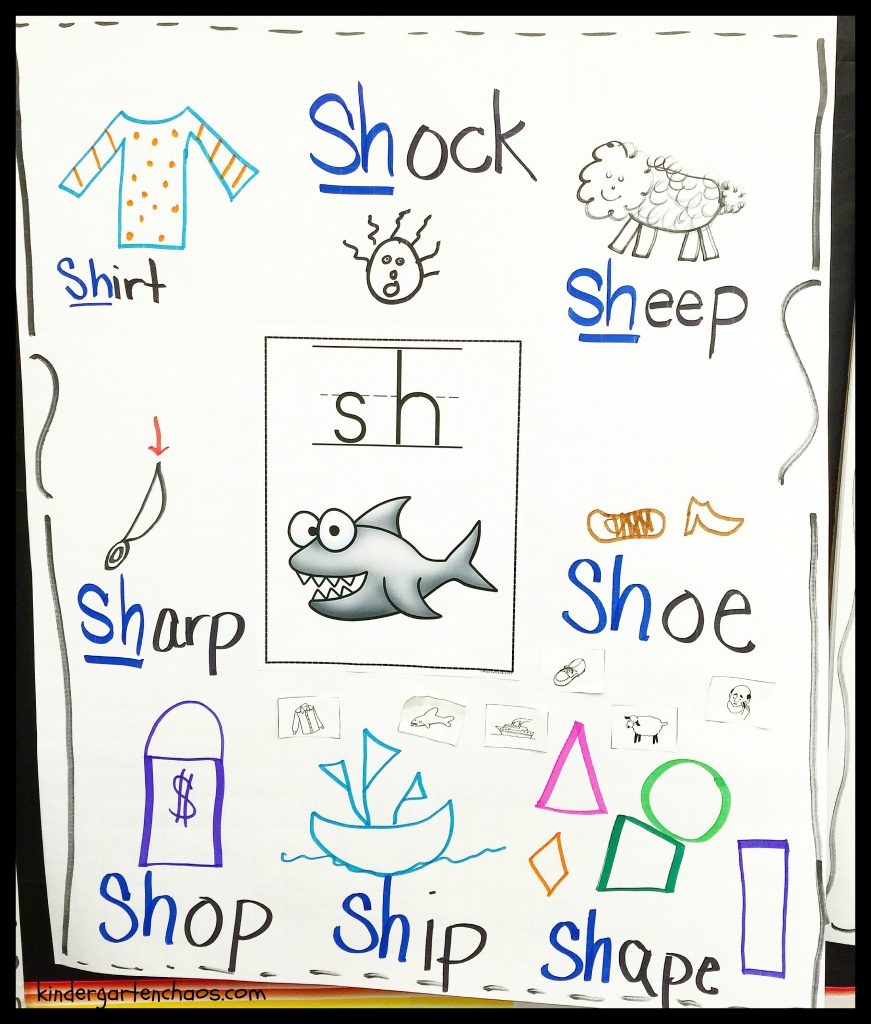 Shock
shirt
sheep
sh
sharp
shoe
$
Shop
ship
shape
kindergartenchaos.com